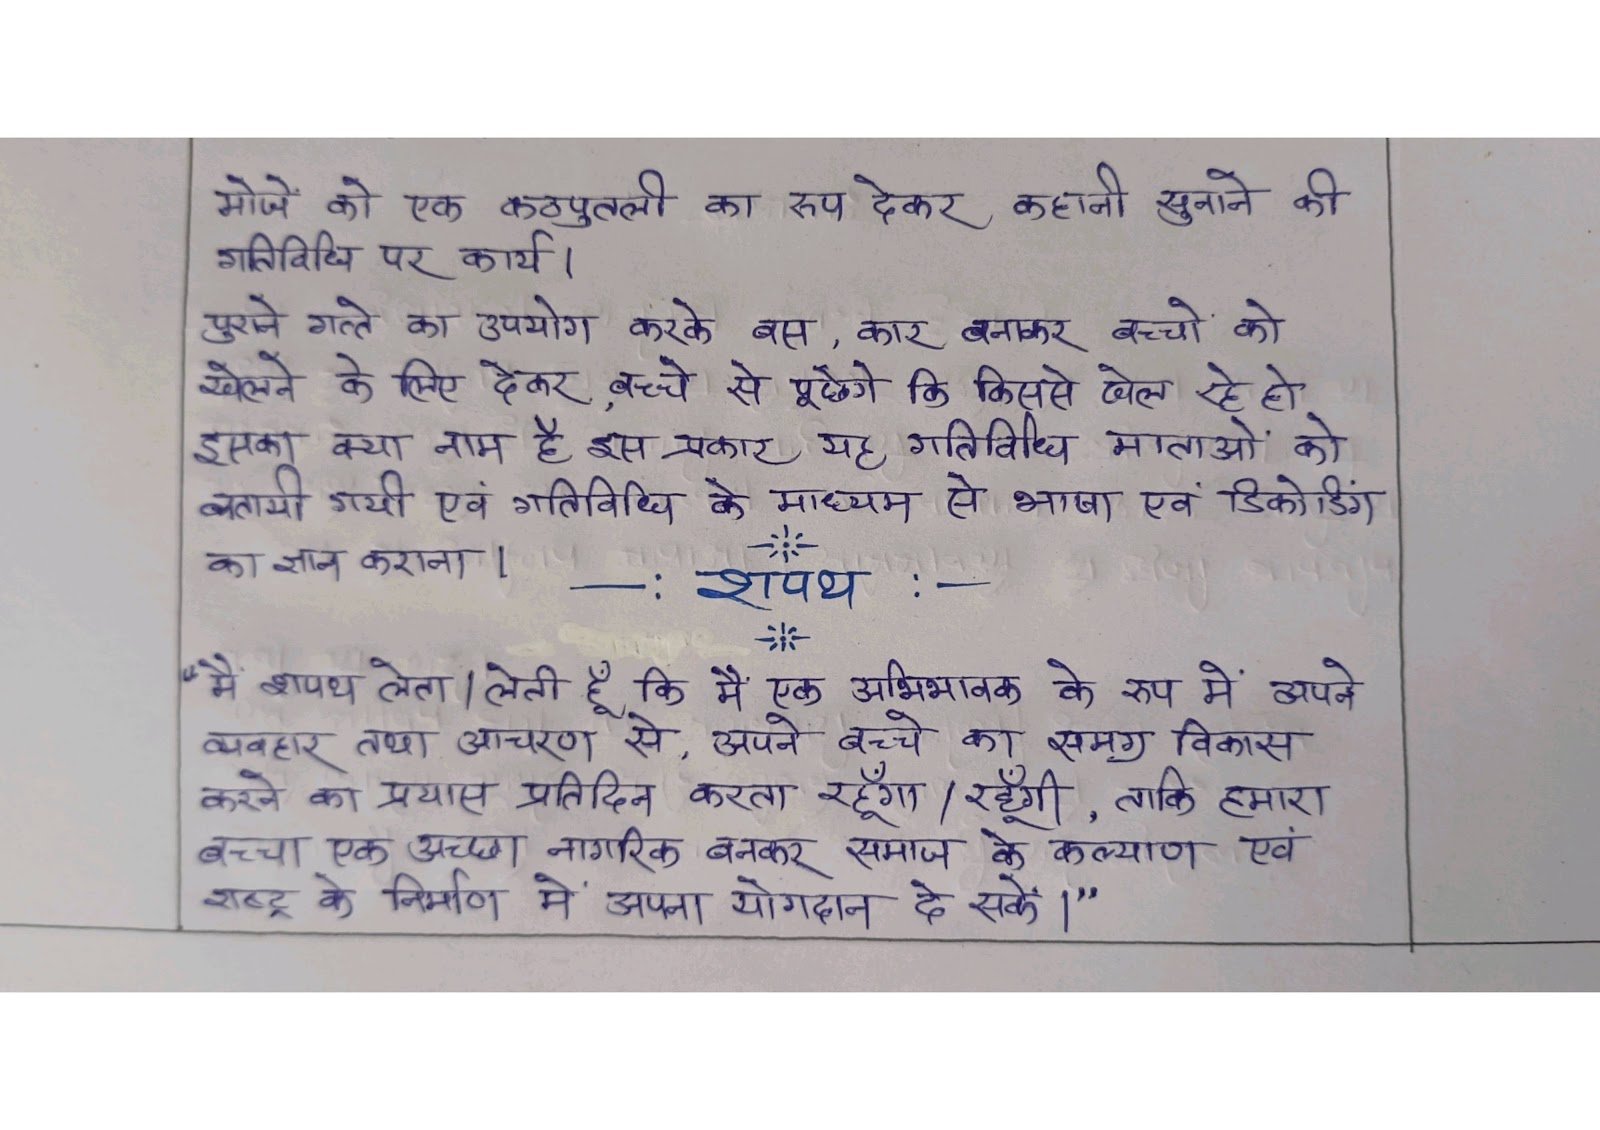 मोजें को एक कठपुतली का रूप देकर कहानी सुनाने की
गतिविधि पर कार्य।
पुराने गत्ते का उपयोग करके बस, कार बनाकर बच्चों को
खेलने के लिए देकर, बच्चे से पूछेगे कि किससे खेल रहे हो
इसका क्या नाम है इस प्रकार यह गतिविधि माताओं को
बतायी गयी एवं गतिविधि के माध्यम से भाषा एवं डिकोडिंग
का ज्ञान कराना।
—: शपथ :—
"मैं शपथ लेता/लेती हूँ कि मैं एक अभिभावक के रूप में अपने
व्यवहार तथा आचरण से, अपने बच्चे का समग्र विकास
करने का प्रयास प्रतिदिन करता रहूँगा/रहूँगी, ताकि हमारा
बच्चा एक अच्छा नागरिक बनकर समाज के कल्याण एवं
राष्ट्र के निर्माण में अपना योगदान दे सकें।"